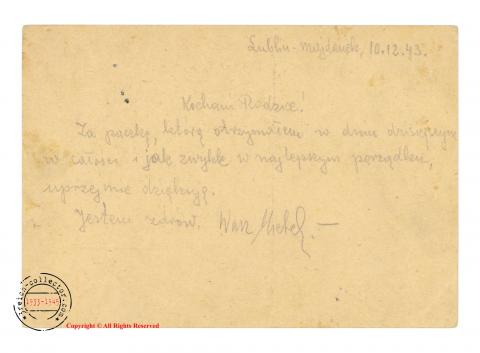 Lublin-Majdanek, 10.12.43.
Kochani Rodzice!
Za paczkę, którą otrzymałem w dniu dzisiejszym
w całości i jak zwykle w najlepszym porządku,
uprzejmie dziękuję.
Jestem zdrów. Wasz
3reich-collector.com
1933-1945
Copyright © All Rights Reserved